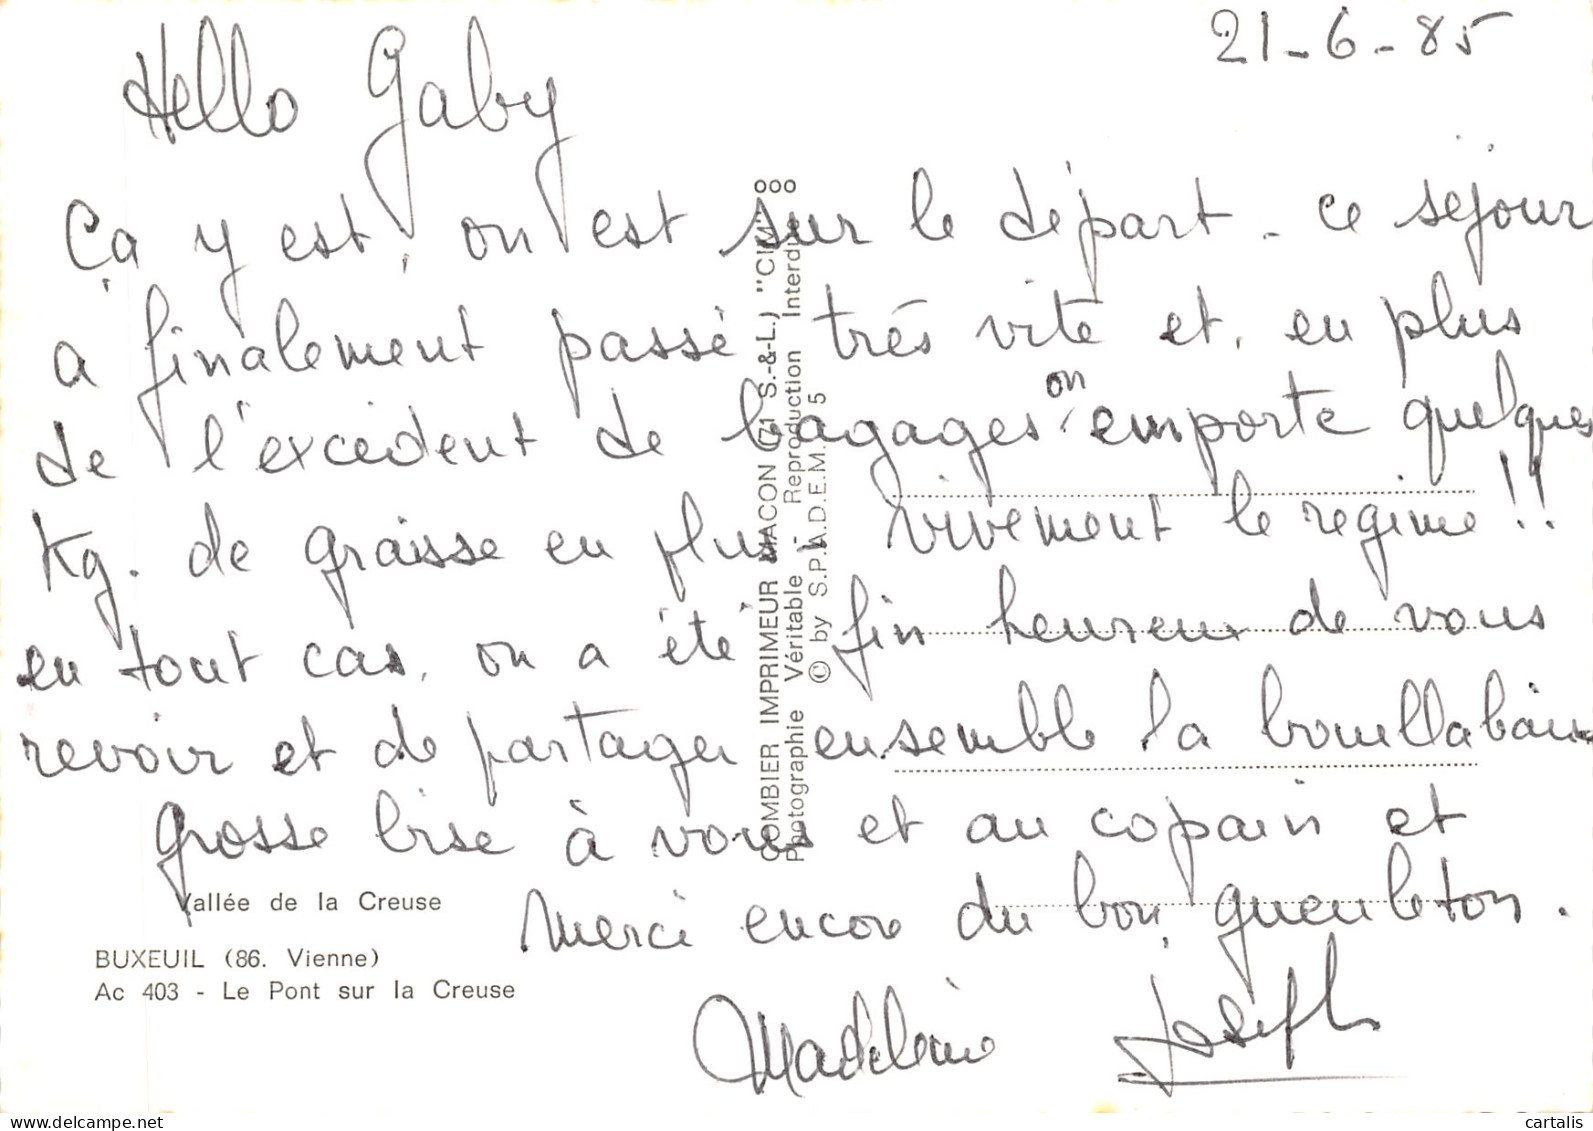 21-6-85
Hello Gaby
Ça y est, on est sur le départ - ce séjour
a finalement passé très vite et, en plus
de l'excédent de bagages on emporte quelques
Kg. de graisse en plus - vivement le régime !!
en tout cas, on a été fin heureux de vous
revoir et de partager ensemble la bouillabaisse
grosse bise à vous et au copain et
Merci encore du bon gueuleton.
Madeleine Joseph
Vallée de la Creuse
BUXEUIL (86. Vienne)
Ac 403 - Le Pont sur la Creuse
COMBIER IMPRIMEUR MACON (71 S.-&-L.) "CIM"
Photographie Véritable - Reproduction Interdite
© by S.P.A.D.E.M. 5
ooo
delcampe.net
cartalis